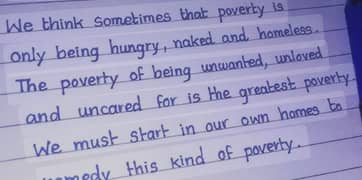 We think sometimes that poverty is
only being hungry, naked and homeless.
The poverty of being unwanted, unloved
and uncared for is the greatest poverty.
We must start in our own homes to
this kind of poverty.